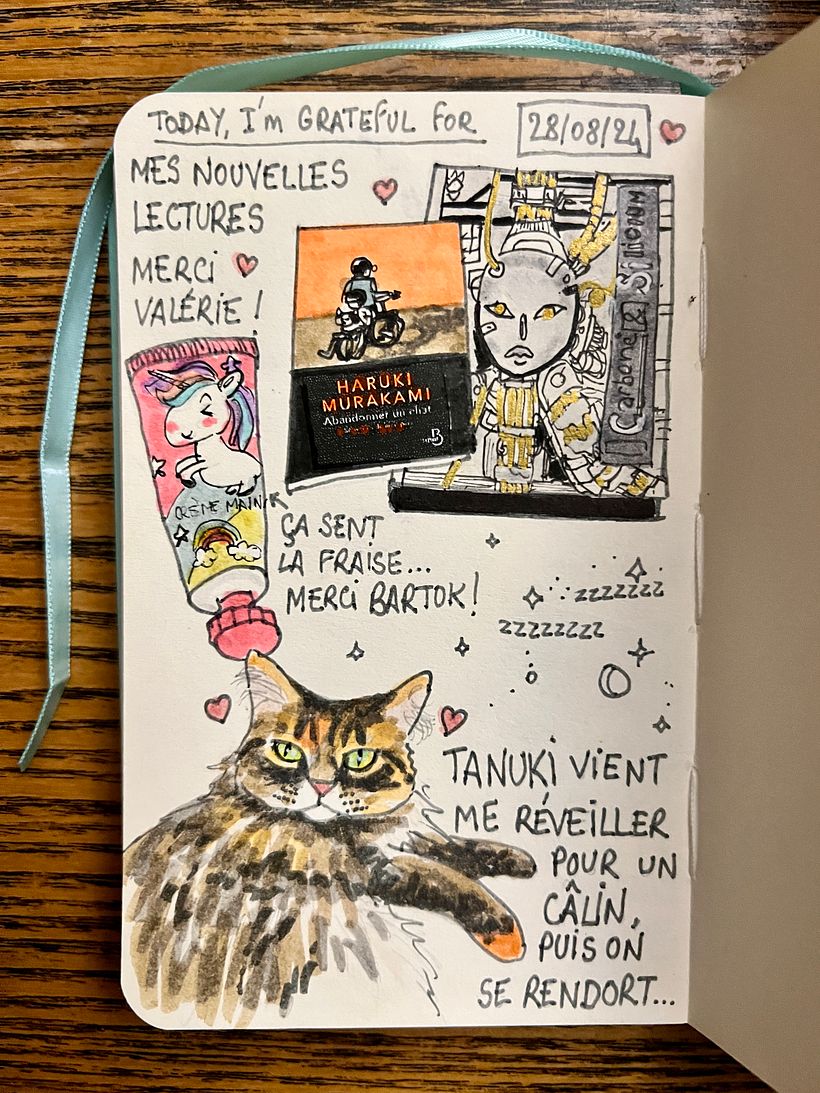 TODAY, I'M GRATEFUL FOR
28/08/24
MES NOUVELLES
LECTURES
MERCI
VALÉRIE !
HARUKI
MURAKAMI
Abandonner un chat
Carbone & Silicium
CRÈME MAIN
ÇA SENT
LA FRAISE...
MERCI BARTOK !
ZZZZZZZ
ZZZZZZZZ
TANUKI VIENT
ME RÉVEILLER
POUR UN
CÂLIN,
PUIS ON
SE RENDORT...